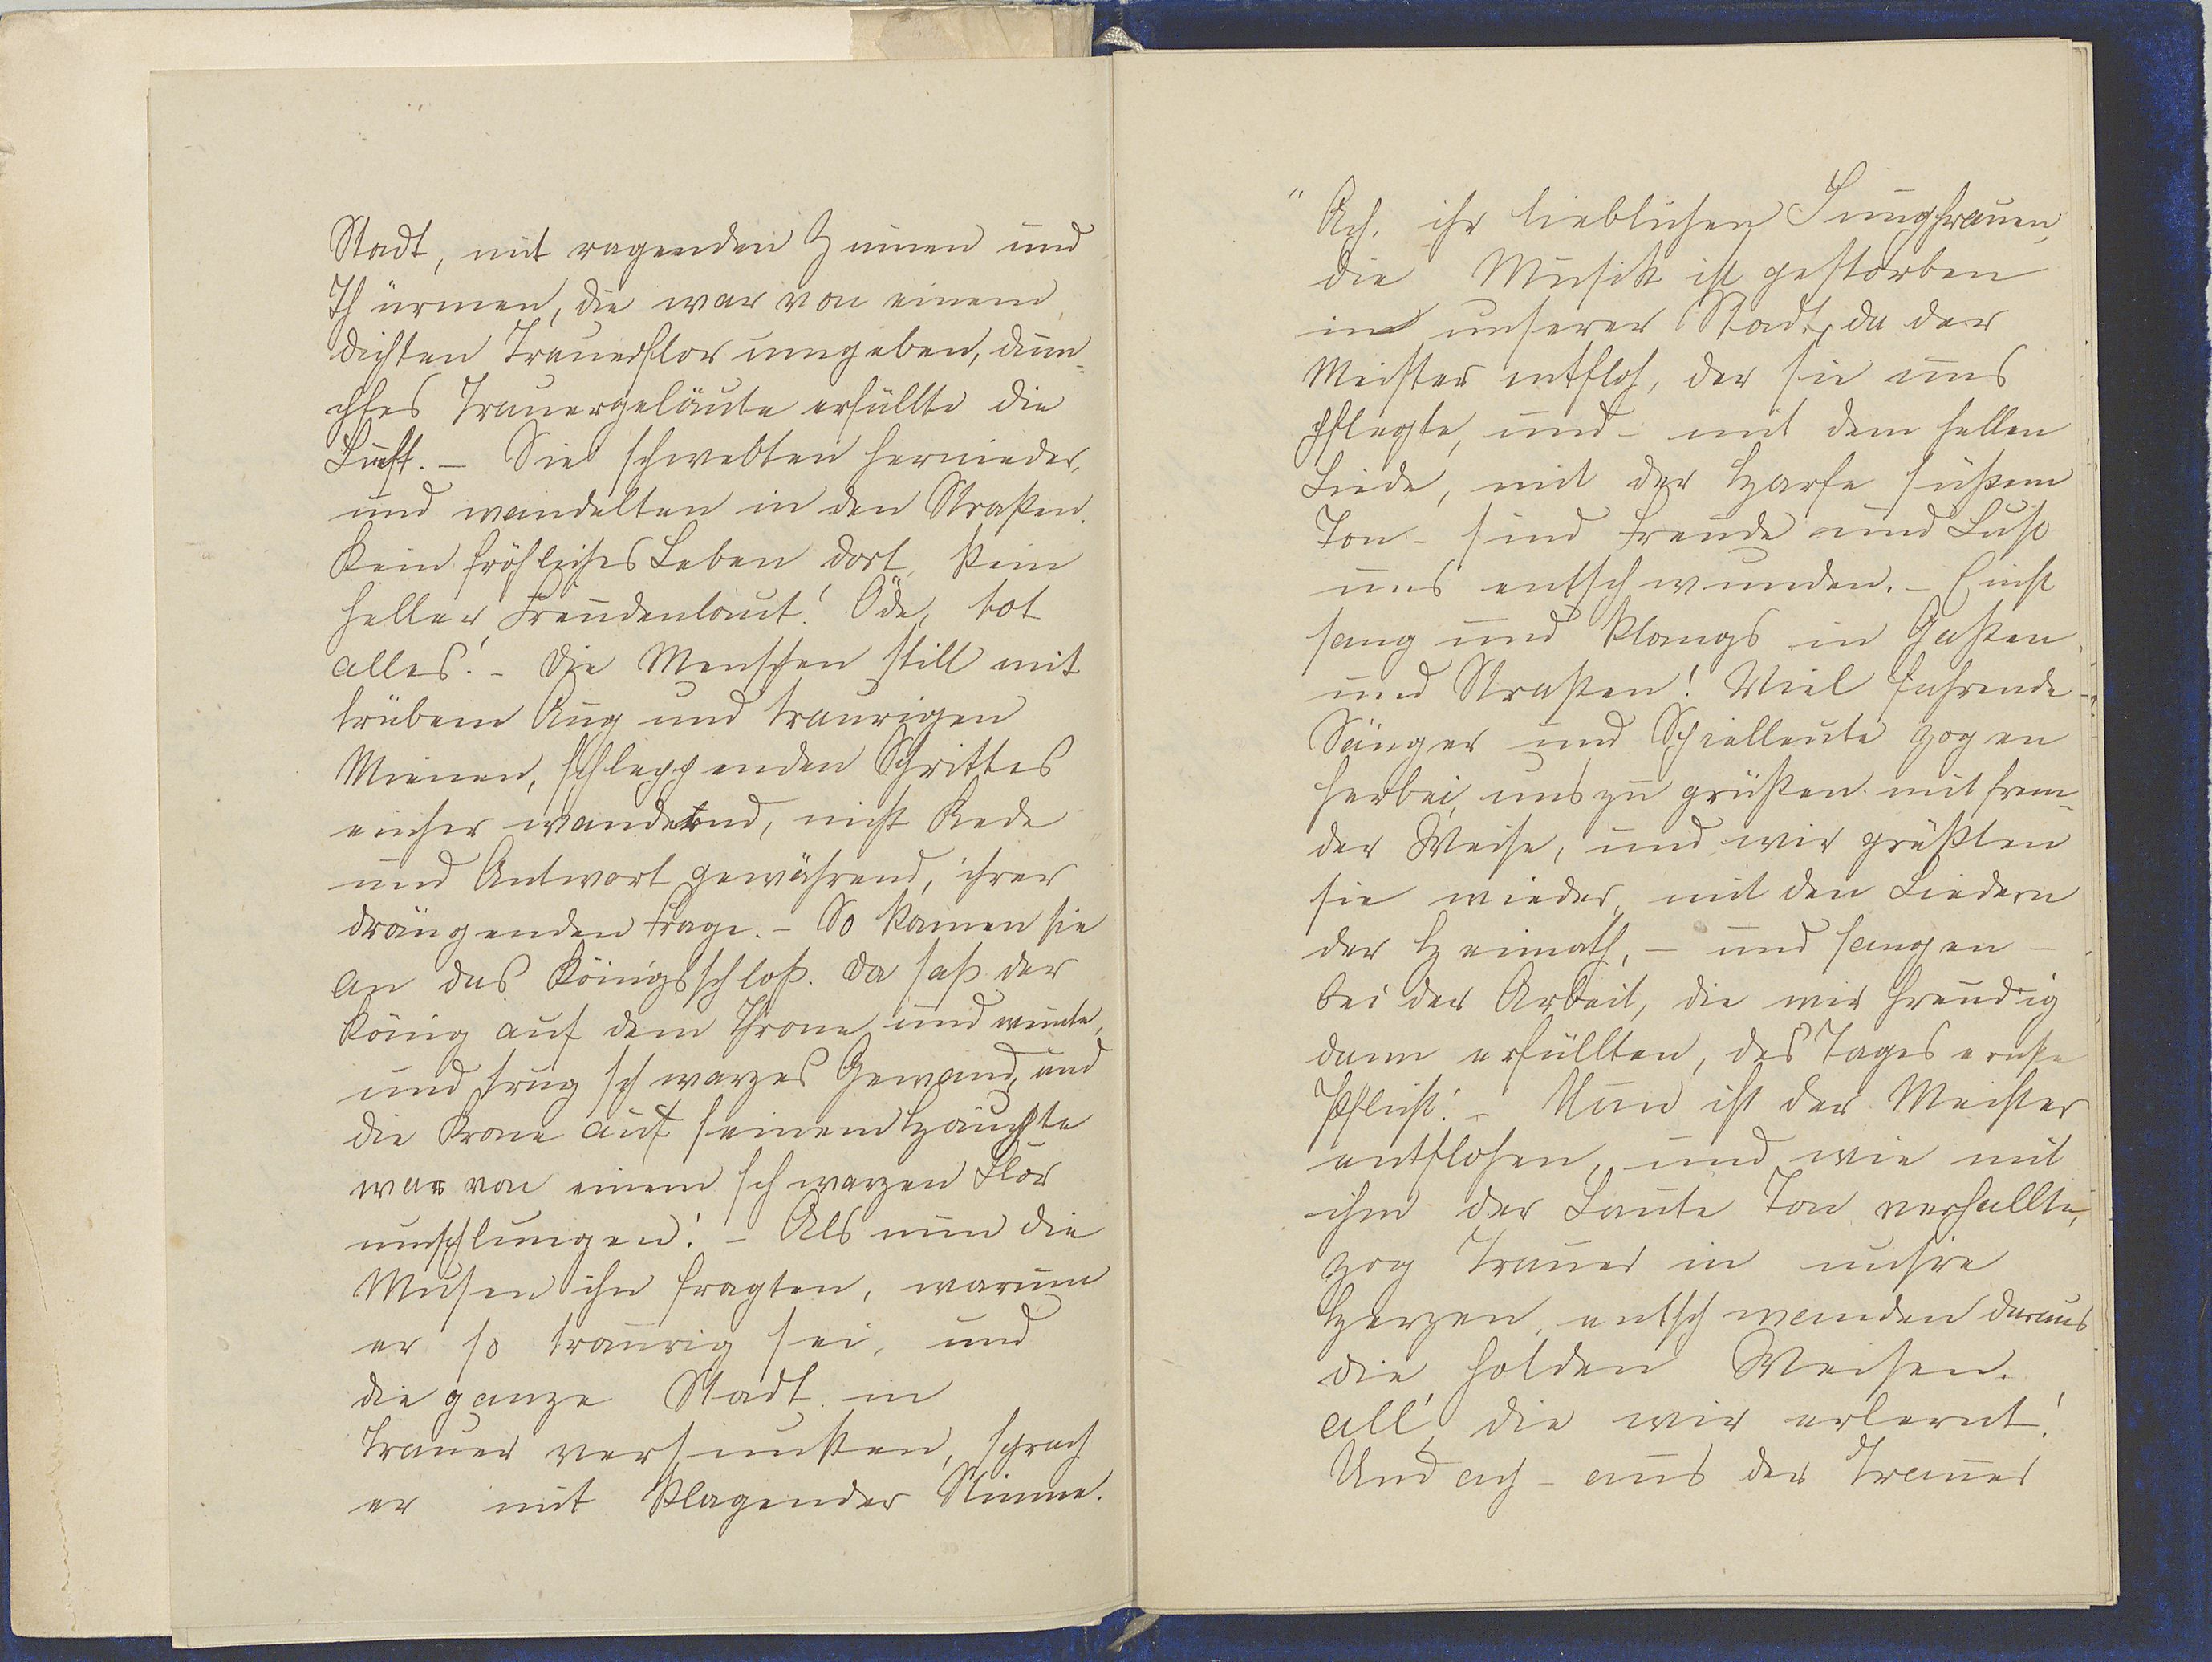 Stadt, mit ragenden Zinnen und
Thürmen, die war von einem
dichten Trauerflor umgeben, dum¬
pfes Trauergeläute erfüllte die
Luft. – Sie schwebten hernieder,
und wandelten in den Straßen.
Kein fröhliches Leben dort, kein
heller Freudenlaut! Öde, tot
alles! – Die Menschen still mit
trübem Aug und traurigen
Mienen, schleppenden Schrittes
einher wandelnd, nicht Rede
und Antwort gewährend, ihrer
drängenden Frage. – So kamen sie
an das Königsschloß. Da saß der
König auf dem Throne und weinte,
und trug schwarzes Gewand, und
die Krone auf seinem Haupte
war von einem schwarzen Flor
umschlungen! – Als nun die
Musen ihn fragten, warum
er so traurig sei, und
die ganze Stadt in
Trauer versunken, sprach
er mit klagender Stimme.
"Ach, ihr lieblichen Jungfrauen,
die Musik ist gestorben
in unserer Stadt, da der
Meister entfloh, der sie uns
pflegte, und – mit dem hellen
Liede, mit der Harfe süßem
Ton – sind Freude und Lust
uns entschwunden. – Einst
sang und klangs in Gassen
und Straßen! Viel fahrende
Sänger und Spielleute zogen
herbei, uns zu grüßen mit frem¬
der Weise, und wir grüßten
sie wieder, mit den Liedern
der Heimath, – und sangen –
bei der Arbeit, die wir freudig
dann erfüllten, des Tages ernste
Pflicht! – Nun ist der Meister
entflohen, und wie mit
ihm der Laute Ton verhallte,
zog Trauer in unsre
Herzen, entschwanden daraus
die holden Weisen.
all', die wir erlernt!
Und ach – aus der Trauer